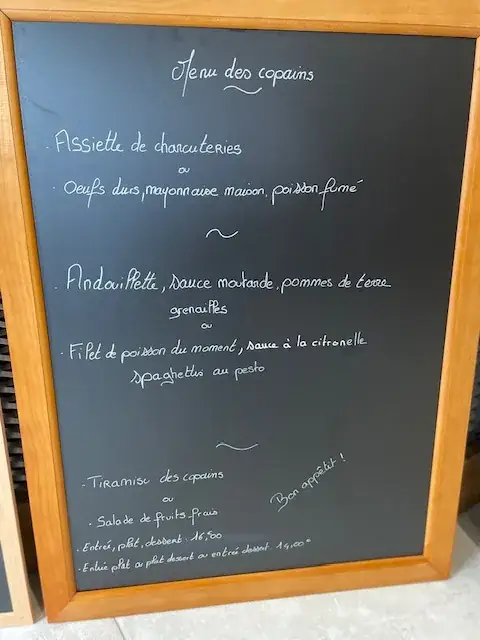 Menu des copains
. Assiette de charcuteries
ou
. Oeufs durs, mayonnaise maison, poisson fumé
~
. Andouillette, sauce moutarde, pommes de terre
grenailles
ou
. Filet de poisson du moment, sauce à la citronelle
spaghettis au pesto
~
. Tiramisu des copains
ou
. Salade de fruits frais
Bon appétit !
. Entrée, plat, dessert : 16,€00
. Entrée plat ou plat dessert ou entrée dessert : 14,00€